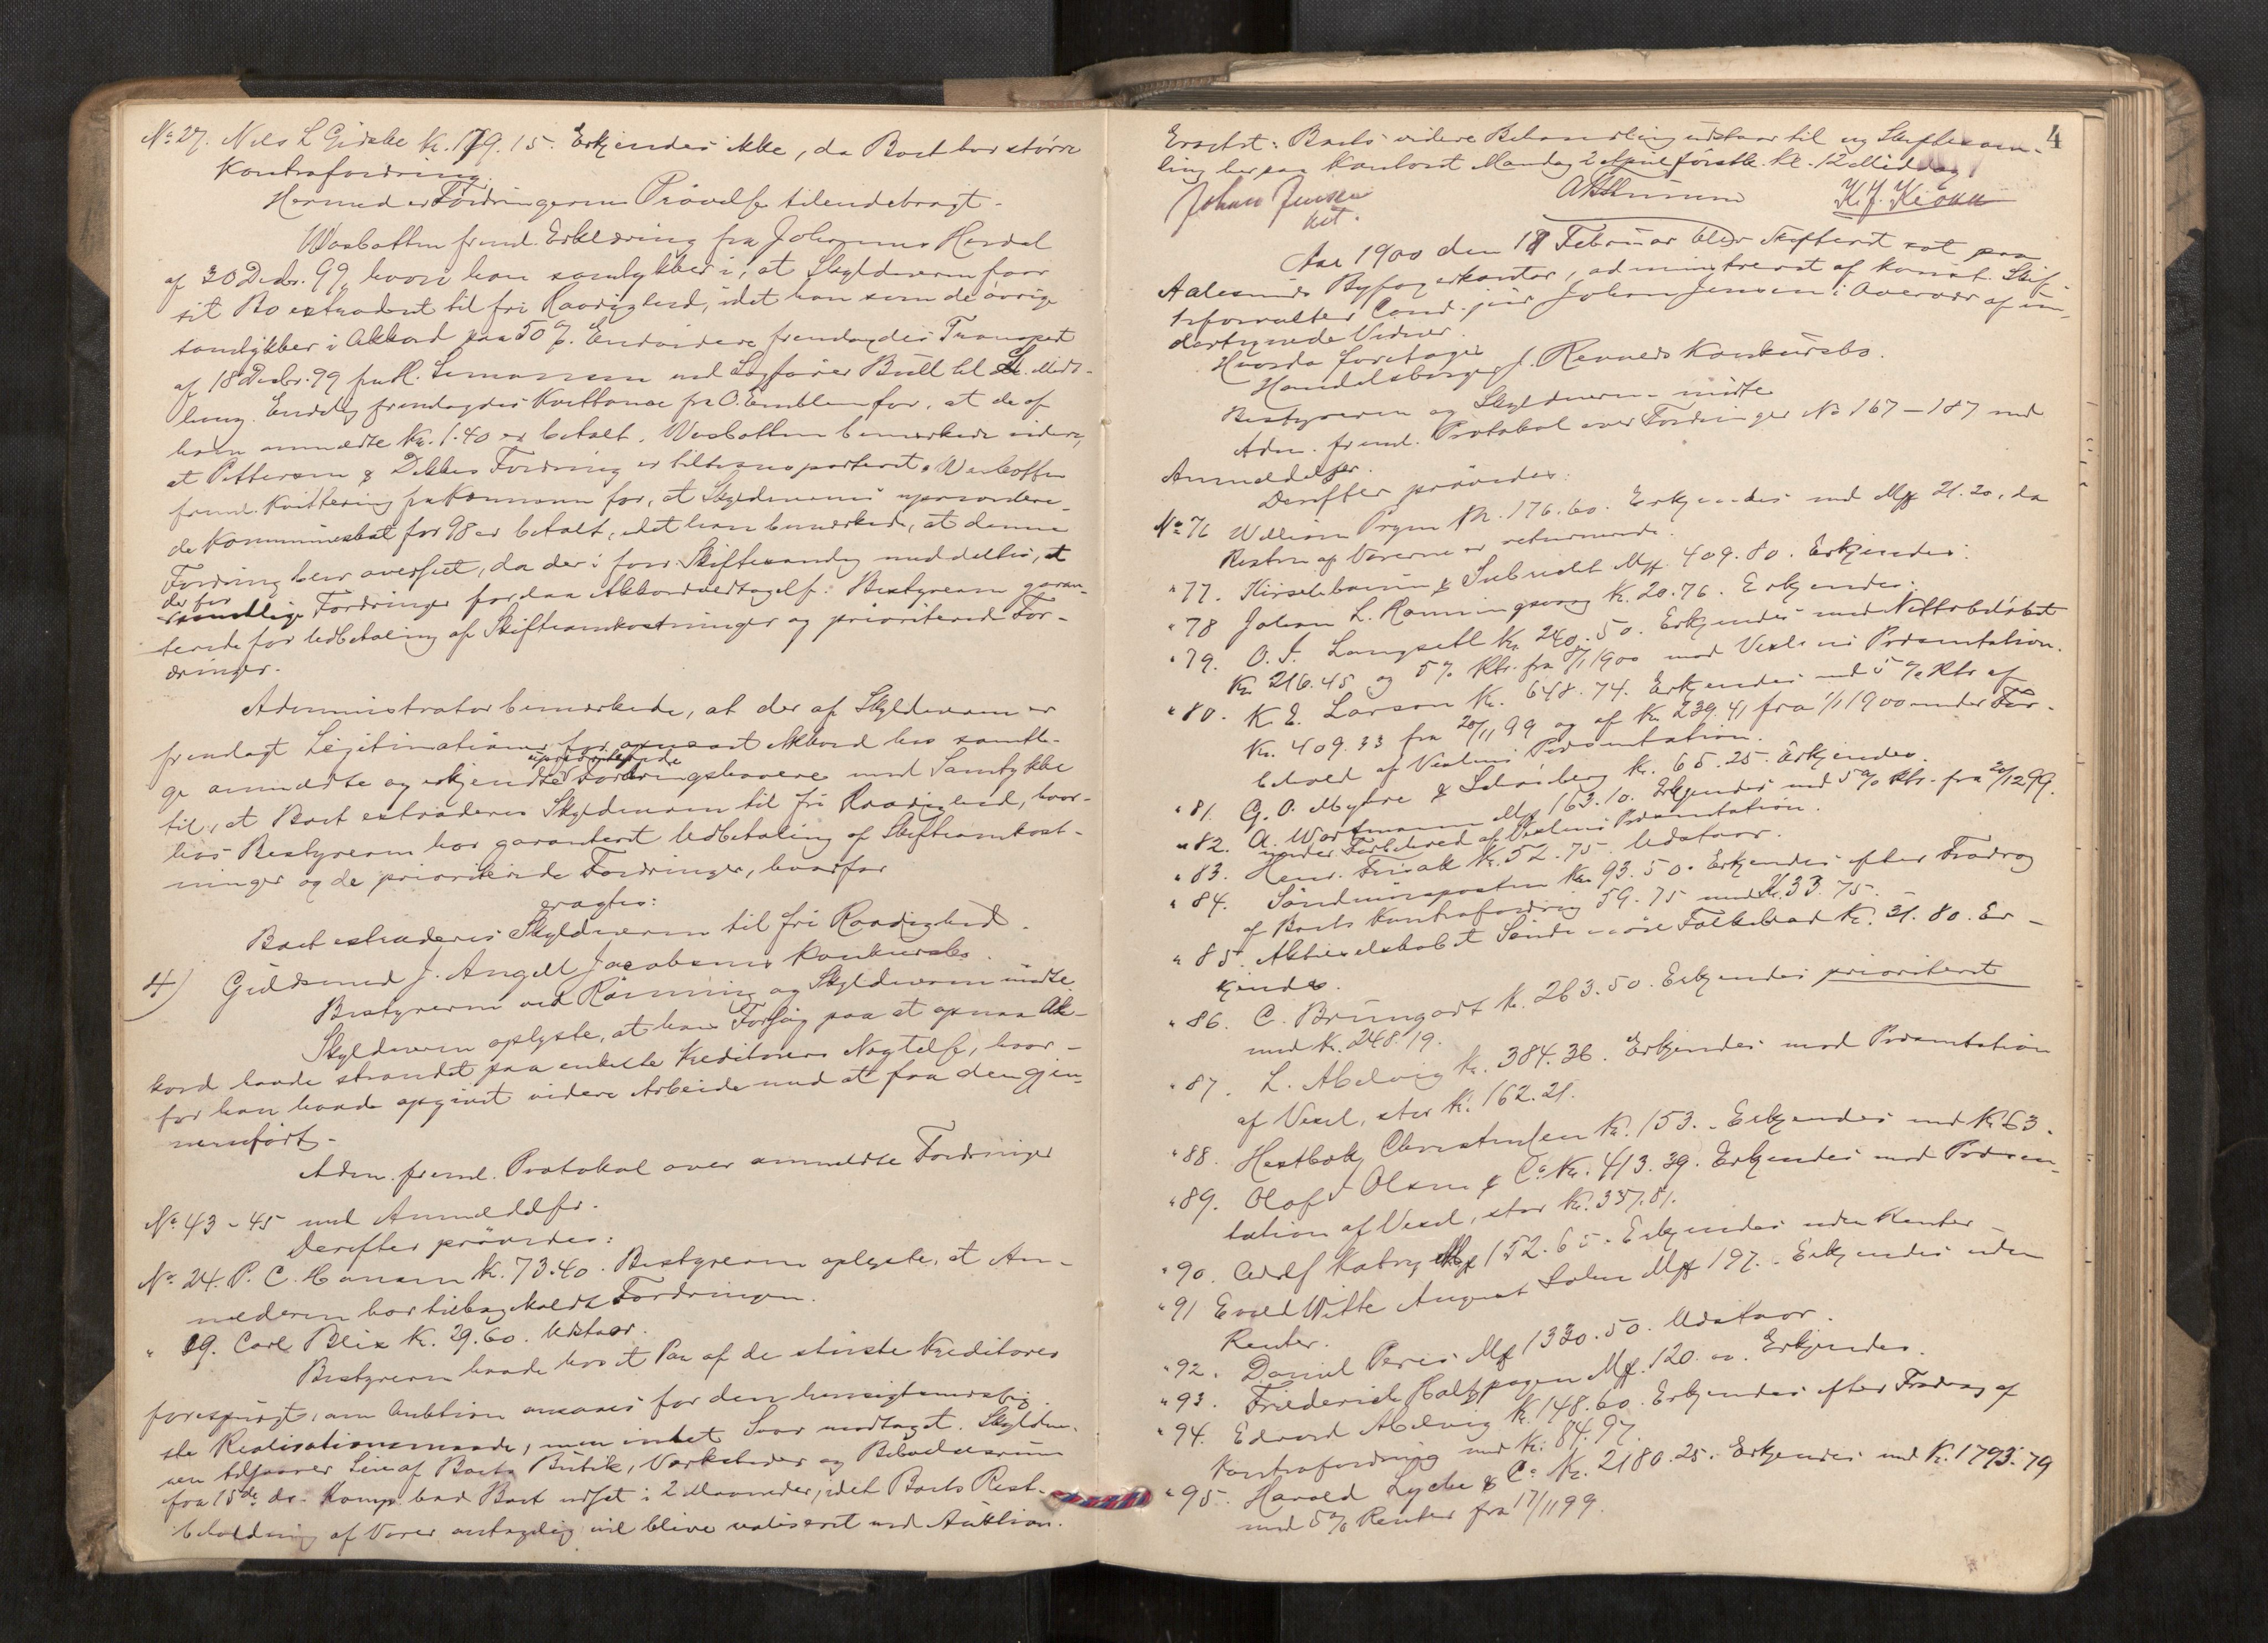 No 27. Nils L Gidske Kr. 179.15. Erkjendes ikke, da Boet har større
Kontrafordring.
Hermed er Fordringernes Prøvelse tilendebragt.
Wasbotten freml. Erklæring fra Johannes Herdal
af 30 Decbr. 99, hvori han samtykker i, at Skyldneren faar
sit Bo extraderet til fri Raadighed, idet han som de øvrige
samtykker i Akkord paa 50%. Endvidere fremlagdes Transport
af 18 Decbr. 99 fra H. Simonsen ved Sagfører Bull til
Endelig fremlagdes Kvittance fra O. Emblem for, at de af
ham anmeldte Kr. 1.40 er betalt. Wasbotten bemærkede videre,
at Pettersen & Dekkes Fordring er tiltransporteret Wasbotten
freml. Kvittering fra Kommunen for, at Skyldnerens uprioritere-
de Kommuneskat for 98 er betalt, idet han bemærkede, at denne
Fordring blev overseet, da der i forr. Skiftesamlg meddeltes, at
der for
samtlige Fordringer forelaa Akkordvedtagelse. Bestyreren garan-
terede for Udbetaling af Skifteomkostninger og prioriterede For-
dringer.
Administrator bemærkede, at der af Skyldneren er
fremlagt Legitimationer for opnaaet Akkord hos samtli-
uprioriterede
ge anmeldte og erkjendte Fordringshavere med Samtykke
til, at Boet extraderes Skyldneren til fri Raadighed, hvor-
hos Bestyreren har garanteret Udbetaling af Skifteomkost-
ninger og de prioriterede Fordringer, hvorfor
eragtes:
Boet extraderes Skyldneren til fri Raadighed.
4) Guldsmed J. Angell Jacobsens Konkursbo.
Bestyreren ved Rønning og Skyldneren mødte.
Skyldneren oplyste, at hans Forsøg paa at opnaa Ak-
kord havde strandet paa enkelte Kreditorers Nægtelse, hvor-
for han havde opgivet videre Arbeide med at faa den gjen-
nemført.
Adm. freml. Protokol over anmeldte Fordringer
No 43 - 45 med Anmeldelser.
Derefter prøvedes:
No 24. P. C. Hansen Kr. 73.40. Bestyreren oplyste, at An-
melderen har tilbagekaldt Fordringen.
" 29. Carl Blix Kr. 29.60. Udstaar.
Bestyreren havde hos et Par af de største Kreditorer
forespurgt, om Auktion ansaaes for den hensigtsmæssig-
ste Realisationsmaade, men intet Svar modtaget. Skyldne-
ren tilsvarer Leie af Boets Butik, Værksteder og Beboelsesrum
fra 15de ds. Komp. bad Boet udsat i 2 Maaneder, idet Boets Rest-
beholdning af Varer antagelig vil blive realiseret ved Auktion.
4
Eragtet: Boets videre Behandling udstaar til ny Skiftesam-
ling her paa Kontoret Mandag 2 April førstk. Kl. 12 Middag
Johan Jensen
kst. K. J. Kiönn
Aar 1900 den 17 Februar blev Skifteret sat paa
Aalesunds Byfogedkontor, administreret af konst. Skif-
teforvalter Cand. jur Johan Jensen i Overvær af un-
dertegnede Vidner.
Hvorda foretoges
Handelsborger J. Rennerts Konkursbo.
Bestyreren og Skyldneren mødte
Adm. freml. Protokol over Fordringer No 167 - 187 med
Anmeldelser.
Derefter prøvedes:
No 76 William Prym Kr. 176.60. Erkjendes med Mk 21.20, da
Resten af Varerne er returnerede.
" 77. Kirschbaum & Siebrecht Mk. 409.80. Erkjendes.
" 78 Johan L. Rønningsvag Kr. 20.76. Erkjendes.
" 79. O. I. Langsetl Kr. 240.50. Erkjendes med Nettobeløbet
Kr. 216.45 og 5% Rtr. fra 1/1 1900 mod Vexlens Præsentation.
" 80. K. E. Larson Kr. 648.74. Erkjendes med 5% Rtr af
Kr. 409.33 fra 20/11 99 og af Kr. 239.41 fra 1/1 1900 under For-
behold af Vexlens Præsentation.
" 81. G. O. Myhre & Schønberg Kr. 65.25. Erkjendes.
" 82. A. Wortmann Mk 163.10. Erkjendes med 5% Rtr. fra 20/12 99.
under Forbehold af Vexlens Præsentation.
" 83. Henr. Finsak Kr. 52.75. Udstaar.
" 84. Søndmørsposten Kr. 93.50. Erkjendes efter Fradrag
af Boets Kontrafordring 59.75 med Kr. 33.75.
" 85. Aktieselskabet Søndmøre Folkeblad Kr. 31.80. Er-
kjendes.
" 86. C. Brungodt Kr. 263.50. Erkjendes prioriteret
med Kr. 248.19.
" 87. L. Abelvig Kr. 384.36. Erkjendes mod Præsentation
af Vexel, stor Kr. 162.21.
" 88. Hestbek, Christensen Kr. 153. Erkjendes med Kr 63.
" 89. Olaf T Olsen & Co Kr. 413.39. Erkjendes mod Præsen-
tation af Vexel, stor Kr. 337.81.
" 90. Adolf Katry Mk 152.65. Erkjendes uden Renter.
" 91 Ewald Witte August Sohn Mk 197. Erkjendes uden
Renter.
" 92. Daniel Peres Mk 1330.50. Udstaar.
" 93. Friederich Halfpagen Mk. 120.00. Erkjendes.
" 94. Edvard Abelvig Kr. 148.60. Erkjendes efter Fradrag af
Kontrafordring med Kr. 84.97.
" 95. Harald Lyche & Co Kr. 2180.25. Erkjendes med Kr. 1793.79
med 5% Renter fra 17/11 99.